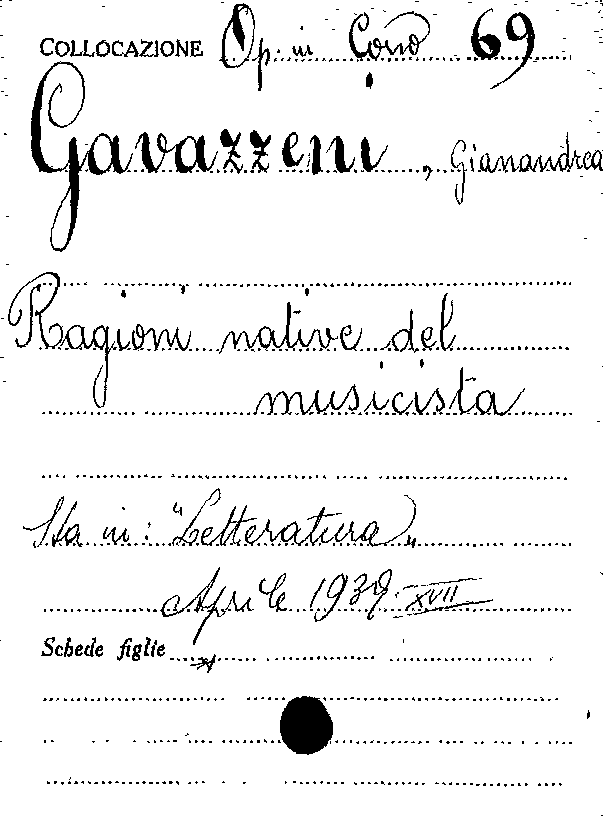 COLLOCAZIONE Op. in Corso 69
Gavazzeni, Gianandrea
Ragioni native del
musicista
Sta in: "Letteratura„
Aprile 1939. XVII
Schede figlie